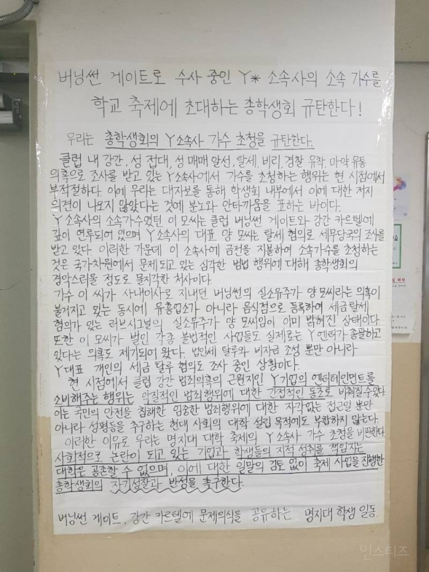 버닝썬 게이트로 수사 중인 Y* 소속사의 소속 가수를
학교 축제에 초대하는 총학생회 규탄한다!
우리는 총학생회의 Y소속사 가수 초청을 규탄한다.
클럽 내 강간, 성 접대, 성 매매 알선, 탈세 비리 경찰 유착 마약 유통
의혹으로 조사를 받고 있는 Y소속사에서 가수를 초청하는 행위는 현 시점에서
부적절하다. 이에 우리는 대자보를 통해 학생회 내부에서 이에 대한 저지
의견이 나오지 않았다는 것에 분노와 안타까움을 표하는 바이다.
Y소속사의 소속가수였던 이 모씨는 클럽 버닝썬 게이트와 강간 카르텔에
깊이 연루되어 있으며 Y소속사의 대표 양 모씨는 탈세 혐의로 세무당국의 조사를
받고 있다 이러한 가운데 이 소속사에 금전을 지불하여 소속가수를 초청하는
것은 국가차원에서 문제되고 있는 심각한 범법 행위에 대해 총학생회의
경악스러울 정도로 몰지각한 처사이다.
가수 이 씨가 사내이사로 지내던 버닝썬의 실소유주가 양 모씨라는 의혹이
불거지고 있는 동시에 유흥업소가 아니라 음식점으로 등록하여 세금 탈세
혐의가 있는 러브시그널의 실소유주가 양 모씨임이 이미 밝혀진 상태이다
또한 이 모씨가 벌인 각종 불법적인 사업들도 실제로는 Y엔터가
있다는 의혹도 제기되어 왔다. 법인세 탈루와 비자금 조성 뿐만 아니라
Y대표 개인의 세금 탈루 혐의도 조사 중인 상황이다.
현 시점에서 클럽 강간 범죄의혹의 근원지인 Y기업의 엔터테인먼트를
소비해주는 행위는 악질적인 범죄행위에 대한 간접적인 동조로 비춰질 수 있다
이는 국민의 안전을 침해한 엄중한 범죄행위에 대한 자각없는 접근일 뿐만
아니라 성평등을 추구하는 현대 사회의 대학 설립 목적에도 부합하지 않는다
이러한 이유로 우리는 명지대 대학 축제의 Y소속사 가수 초청을 비판한다
사회적으로 논란이 되고 있는 기업과 학생들의 지적 성취를 책임지는
대학은 공존할 수 없으며, 이에 대한 일말의 검토 없이 축제 사업을 진행한
총학생회의 자기성찰과 반성을 촉구한다.
버닝썬 게이트, 강간 카르텔에 문제의식을 공유하는 명지대 학생 일동
인스티즈